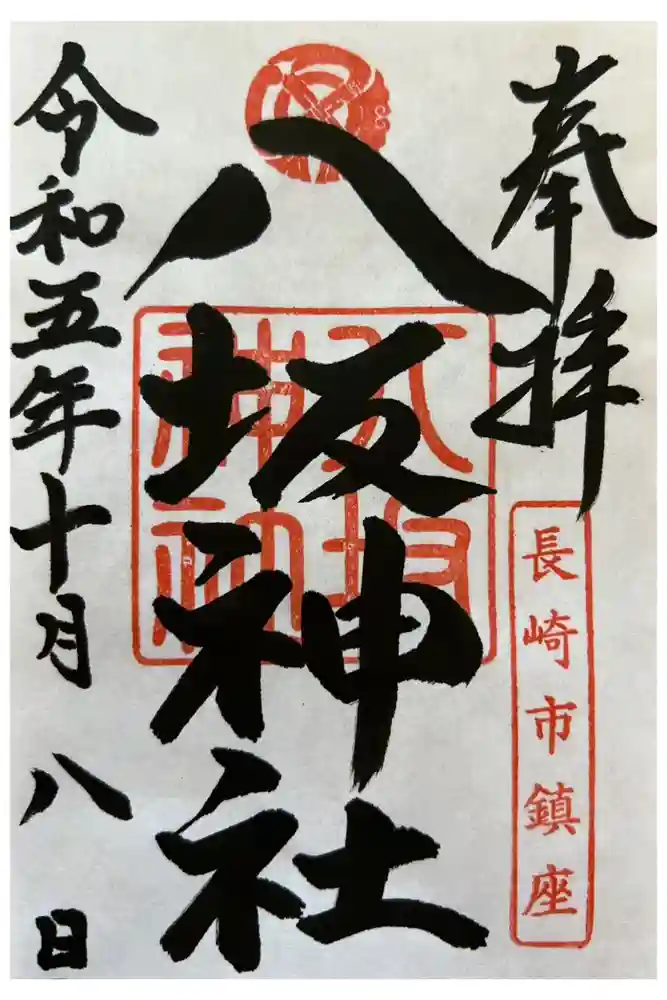 奉拝
長崎市鎮座
八坂神社
八坂
神社
令和五年十月八日